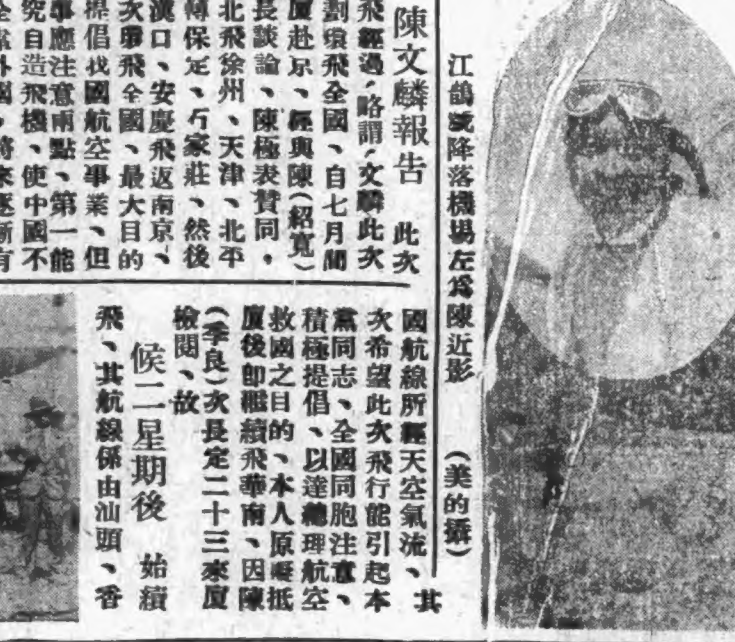 江鴿號降落機場左爲陳近影 (美的攝)
陳文麟報告 此次
飛經過、略謂、文麟此次
劃環飛全國、自七月間
厦赴京、經與陳(紹寬)
長談論、陳極表賛同。
北飛徐州、天津、北平
轉保定、石家莊、然後
漢口、安慶飛返南京、
次環飛全國、最大目的
提倡我國航空事業、但
事應注意兩點、第一能
究自造飛機、使中國不
外國、將來逐漸有
國航線所經天空氣流、其
次希望此次飛行能引起本
黨同志、全國同胞注意、
積極提倡、以達總理航空
救國之目的、本人原擬抵
厦後卽繼續飛華南、因陳
(季良)次長定二十三來厦
檢閱、故
候二星期後 始續
飛、其航線係由汕頭、香